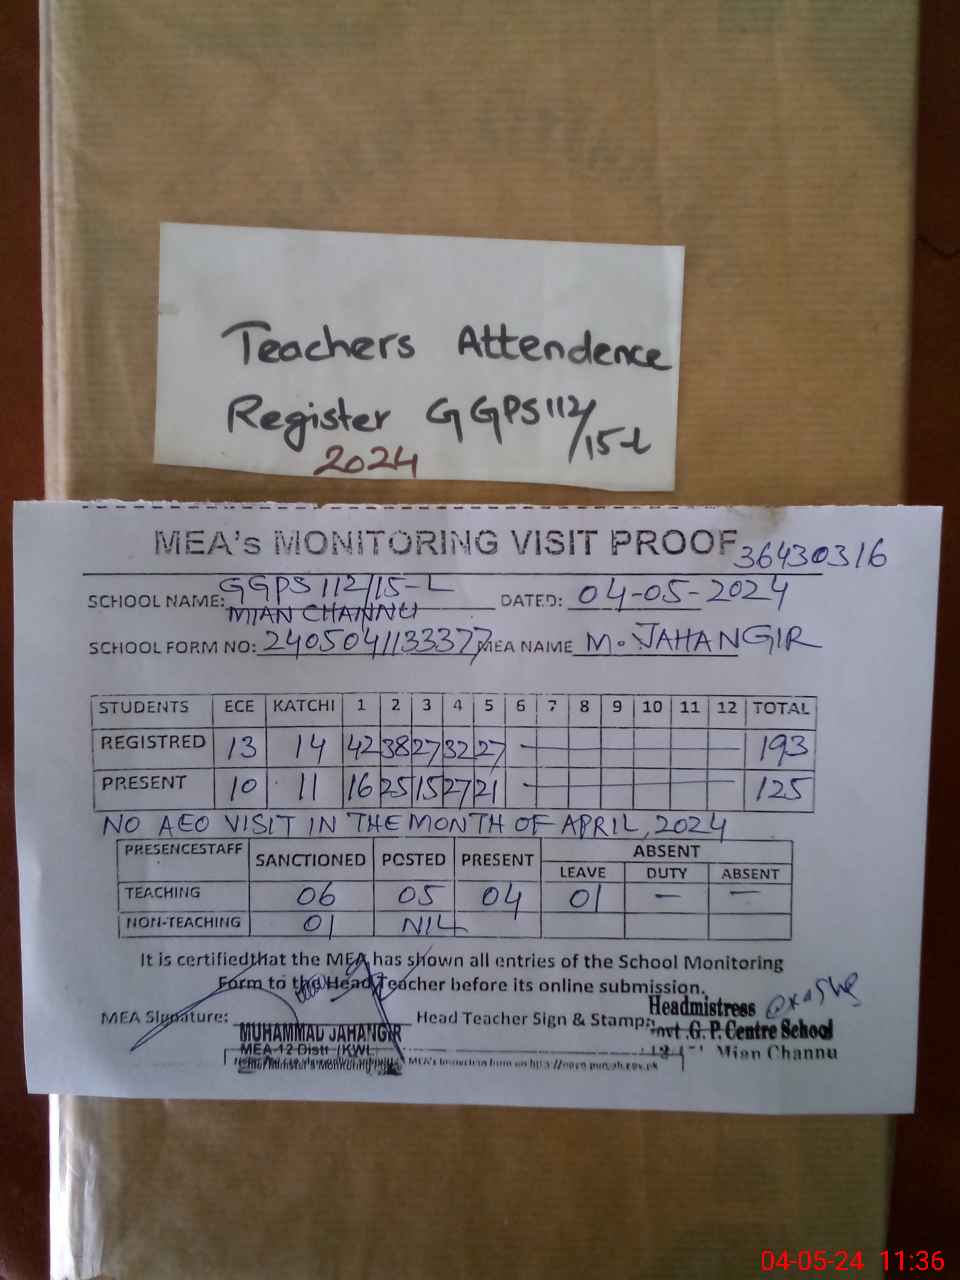 Teachers Attendence
Register GGPS 112/15-L
2024
MEA's MONITORING VISIT PROOF 36430316
SCHOOL NAME: GGPS 112/15-L DATED: 04-05-2024
MIAN CHANNU
SCHOOL FORM NO: 2405041133377 MEA NAME M. JAHANGIR
STUDENTS ECE KATCHI 1 2 3 4 5 6 7 8 9 10 11 12 TOTAL
REGISTRED 13 14 42 38 27 32 27 193
PRESENT 10 11 16 25 15 27 21 125
NO AEO VISIT IN THE MONTH OF APRIL, 2024
PRESENCESTAFF SANCTIONED POSTED PRESENT ABSENT
LEAVE DUTY ABSENT
TEACHING 06 05 04 01 — —
NON-TEACHING 01 NIL
It is certifiedthat the MEA has shown all entries of the School Monitoring
Form to the Head Teacher before its online submission.
MEA Signature: Head Teacher Sign & Stamp:
MUHAMMAD JAHANGIR
MEA-12 Distt (KWL)
Headmistress
Govt .G. P. Centre School
Mian Channu
04-05-24 11:36